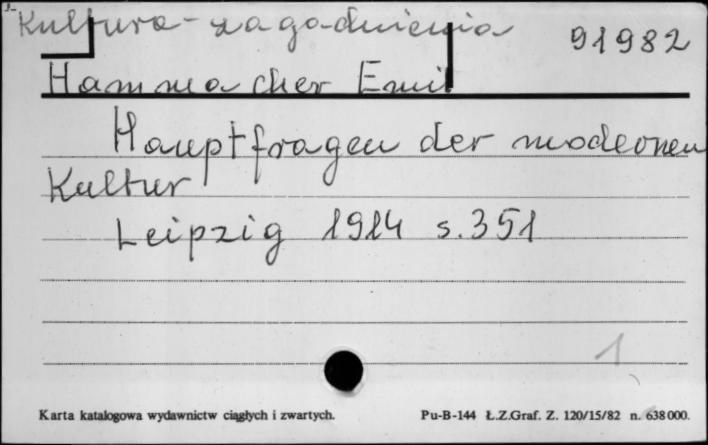 Kultura - zagadnienia 91982
Hammacher Emil
Hauptfragen der modernen
Kultur
Leipzig 1914 s. 351
1
Karta katalogowa wydawnictw ciągłych i zwartych. Pu-B-144 Ł.Z.Graf. Z. 120/15/82 n. 638 000.